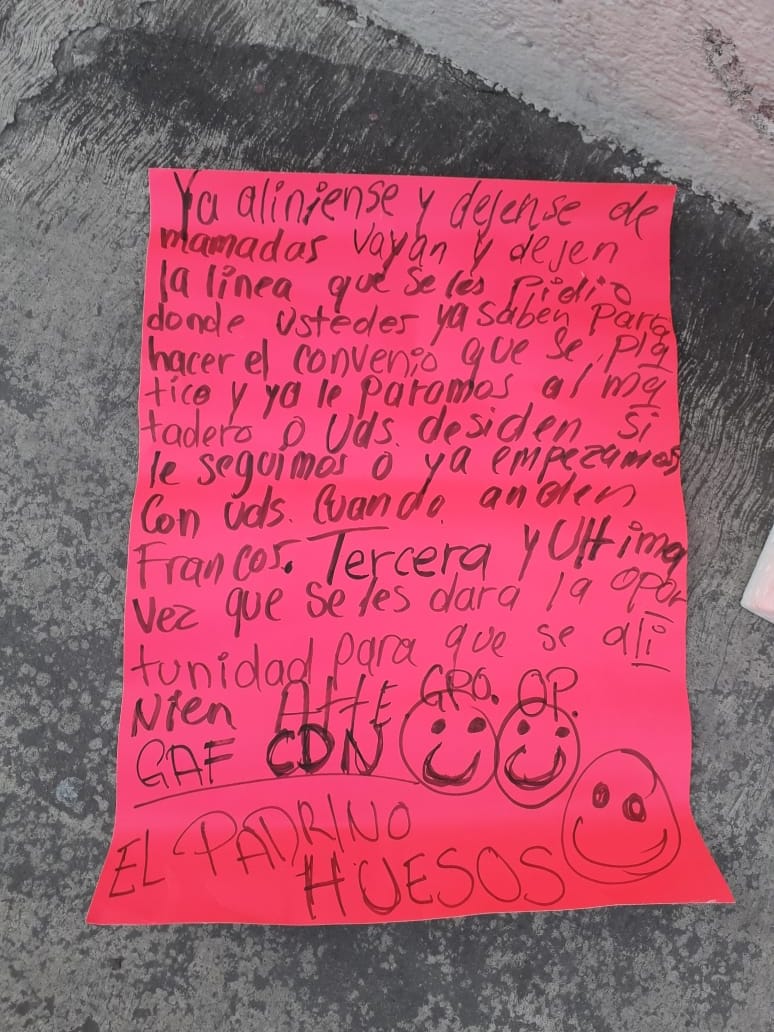 Ya aliniense y dejense de
mamadas vayan y dejen
la linea que se les pidio
donde ustedes ya saben para
hacer el convenio que se pla
tico y ya le paramos al ma
tadero o Uds. desiden si
le seguimos o ya empezamos
Con uds. Cuando anden
Francos. Tercera y Ultima
Vez que se les dara la opor
tunidad para que se ali
Nien Atte GPO. OP.
GAF CDN
EL PADRINO
HUESOS